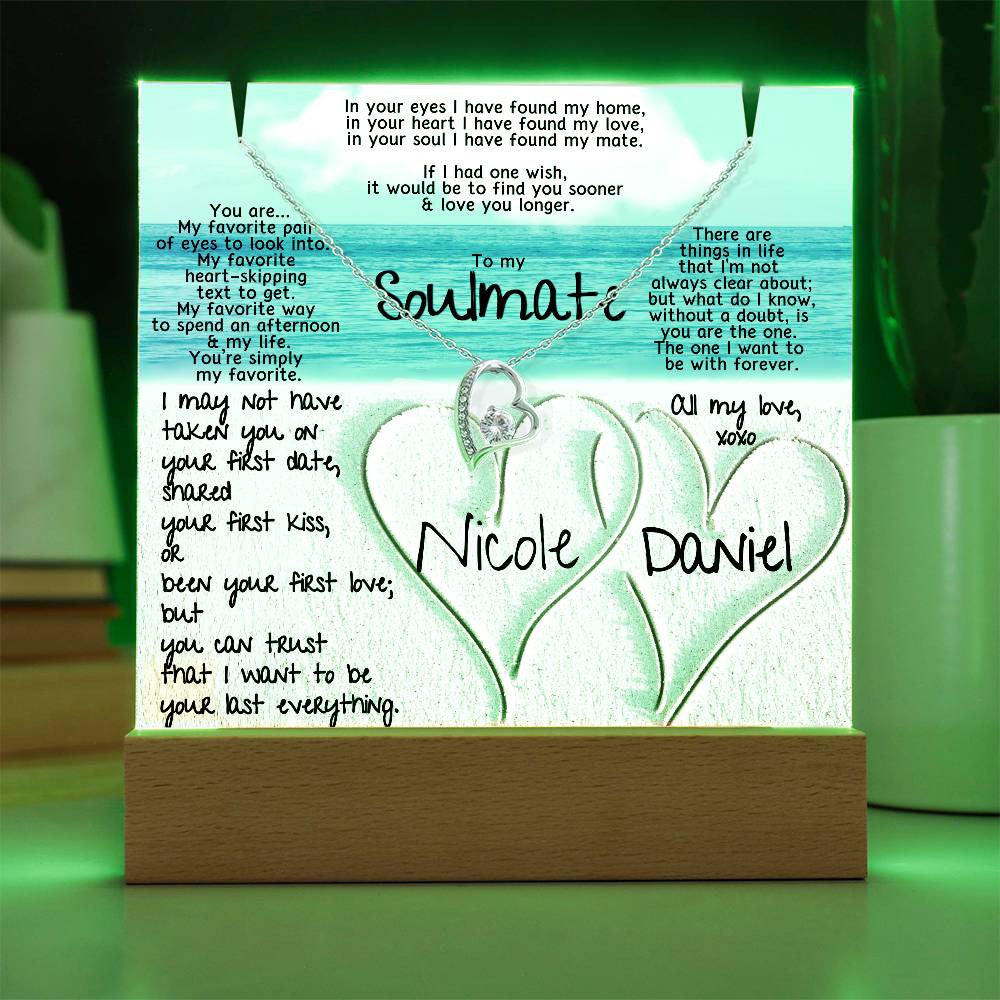 In your eyes I have found my home,
in your heart I have found my love,
in your soul I have found my mate.
If I had one wish,
it would be to find you sooner
& love you longer.
You are...
My favorite pair
of eyes to look into.
My favorite
heart-skipping
text to get.
My favorite way
to spend an afternoon
& my life.
You're simply
my favorite.
To my
Soulmate
There are
things in life
that I'm not
always clear about;
but what do I know,
without a doubt, is
you are the one.
The one I want to
be with forever.
I may not have
taken you on
your first date,
shared
your first kiss,
or
been your first love;
but
you can trust
that I want to be
your last everything.
All my love,
xoxo
Nicole
Daniel